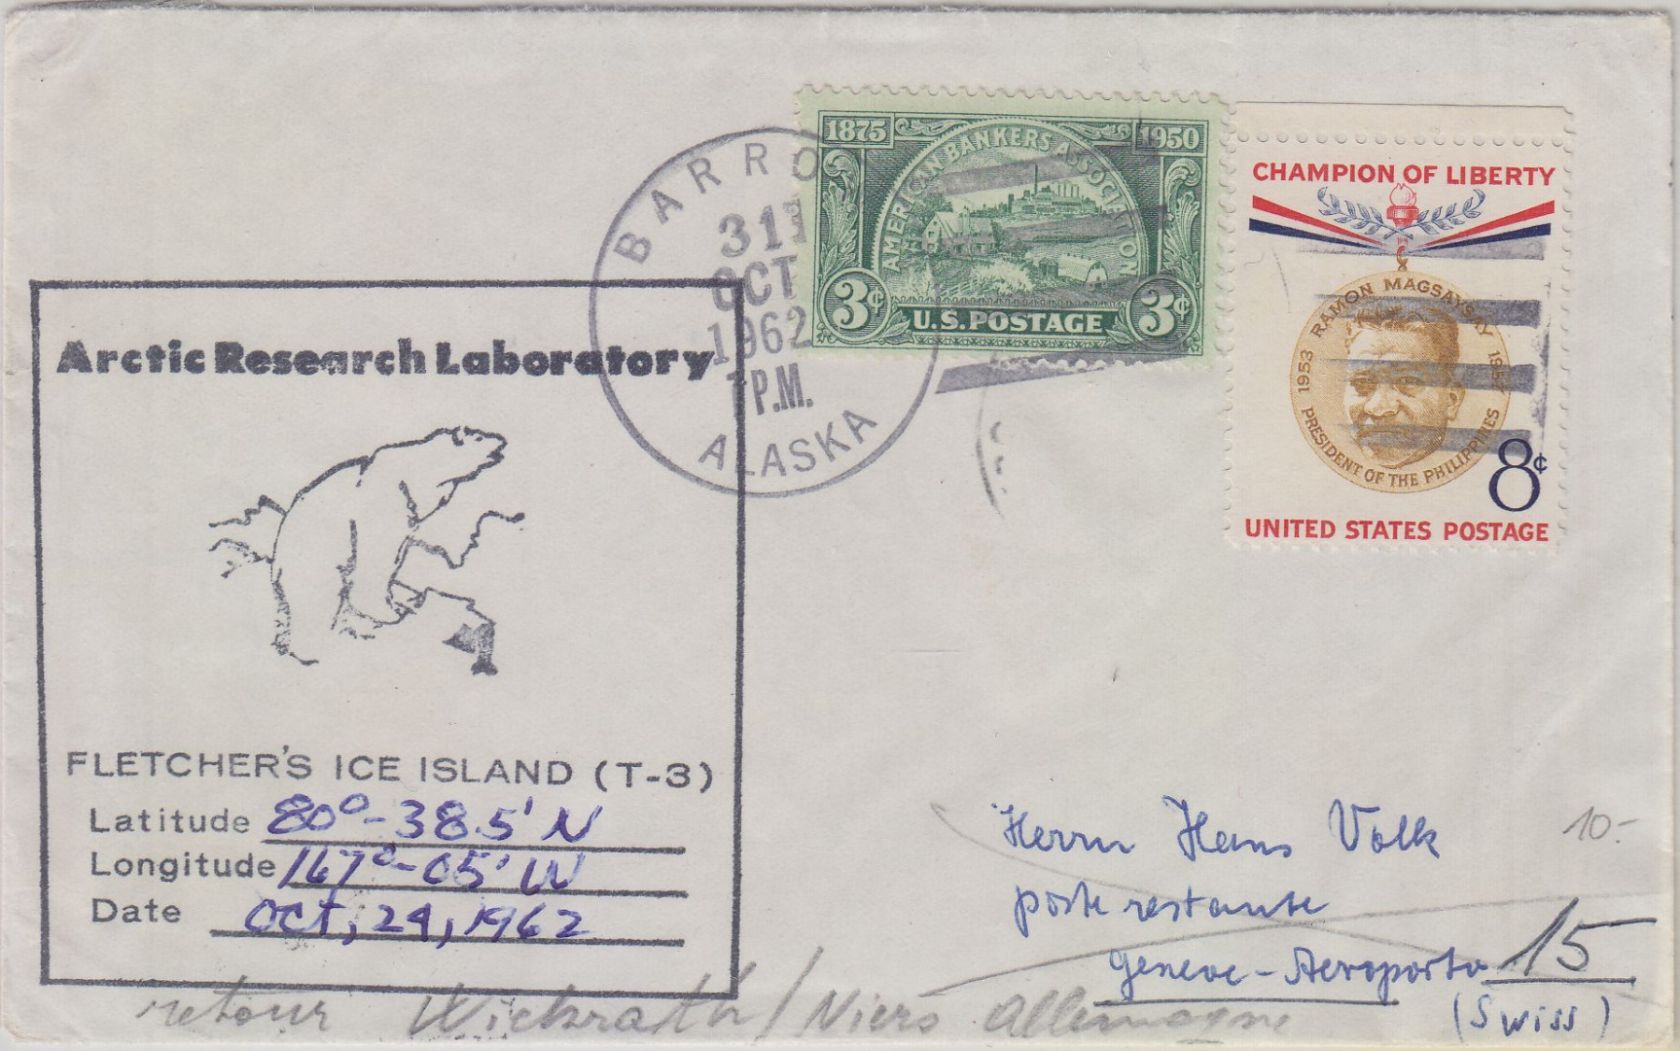 BARRO
31
OCT
1962
P.M.
ALASKA
1875 1950
AMERICAN BANKERS ASSOCIATION
3¢ 3¢
U.S. POSTAGE
CHAMPION OF LIBERTY
RAMON MAGSAYSAY
1953 1957
PRESIDENT OF THE PHILIPPINES
8¢
UNITED STATES POSTAGE
Arctic Research Laboratory
FLETCHER'S ICE ISLAND (T-3)
Latitude 80°-38.5' N
Longitude 167°-05' W
Date OCT, 24, 1962
Herrn Hans Volk
10.-
poste restante
Geneve-Aeroporto 15
(Swiss)
retour Wickrath/Niers Allemagne